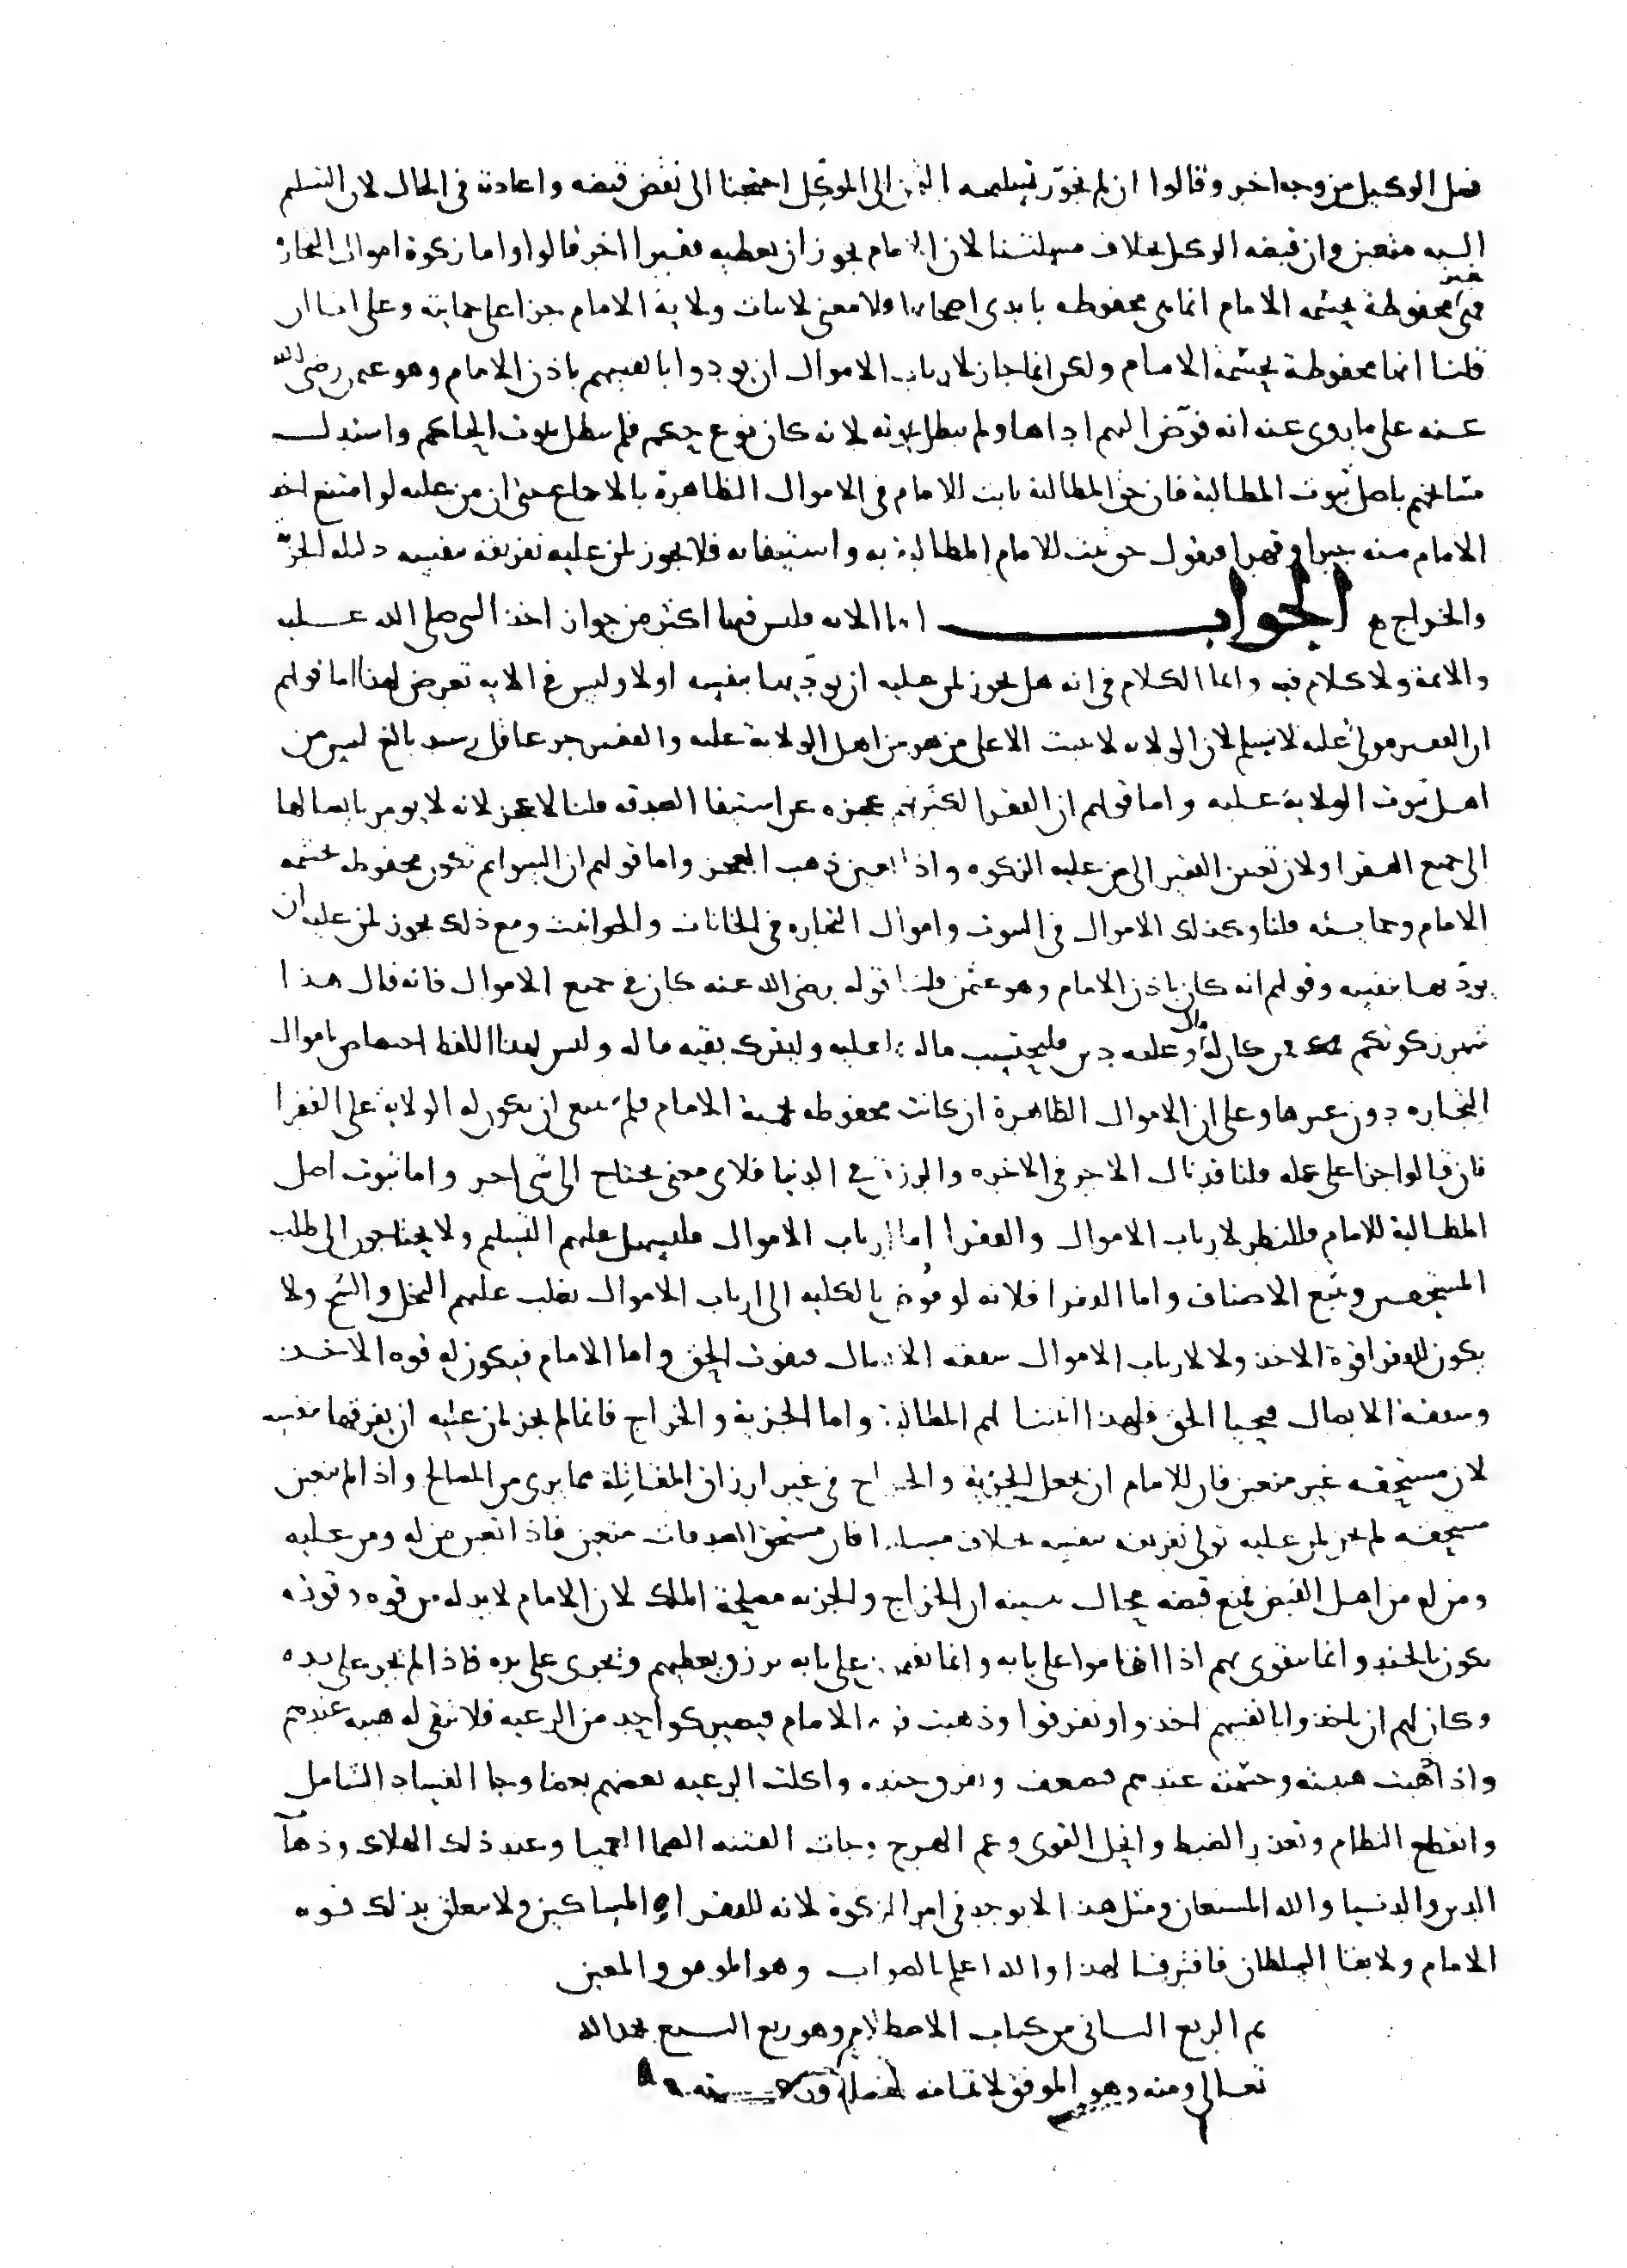 فصل الوكيل من وجه اخر وقالوا ان لم نجوّز تسليمه الثمن الى الموكّل احتجنا الى نقض قبضه واعادته فى الحال لان التسليم
اليه متعين وان قبضه الوكيل بخلاف مسئلتنا لان الامام يجوز ان يعطيه فقيرا اخر قالوا واما زكوة اموال التجارة
فهى غير محفوظة بحشمة الامام انما هى محفوظه بايدى اصحابها ولا معنى لاثبات ولاية الامام جزا على حمايته وعلى انا ان
قلنا انها محفوظة بحشمة الامام ولكن انما جاز لارباب الاموال ان يودوا بانفسهم باذن الامام وهو عمر رضى الله
عنه على ما روى عنه انه فوّض اليهم اداها ولم يبطل بموته لانه كان نوع حكم فلم يبطل بموت الحاكم واستدل
مشايخهم باصل ثبوت المطالبة فان حق المطالبة ثابت للامام فى الاموال الظاهرة بالاجماع حتى ان من عليه لو امتنع اخذ
الامام منه جبرا وقهرا فيقول حق ثبت للامام المطالبة به واستيفاه فلا يجوز لمن عليه تفريقه بنفسه دليله الجزية
والخراج الجواب اما الايه فليس فيها اكثر من جواز اخذ النبى صلى الله عليه
والائمة ولا كلام فيه وانما الكلام فى انه هل يجوز لمن عليه ان يودّيها بنفسه اولا وليس فى الايه تعرض لهذا اما قولهم
ان الفقير مولى عليه لا نسلم لان الولايه لا تثبت الا على من هو من اهل الولاية عليه والفقير حر عاقل رشيد بالغ ليس من
اهل ثبوت الولاية عليه واما قولهم ان الفقرا لكثرتهم عجزه عن استيفا الصدقه قلنا لا عجز لانه لا يومر بايصالها
الى جميع الفقرا ولان تعيين الفقير الى من عليه الزكوه واذا تعين ذهب العجز واما قولهم ان السوايم تكون محفوظه بحشمه
الامام وحمايته قلنا وكذلك الاموال فى البيوت واموال التجاره فى الخانات والحوانيت ومع ذلك يجوز لمن عليه ان
يودّيها بنفسه وقولهم انه كان باذن الامام وهو عثمن قلنا قوله رضى الله عنه كان فى جميع الاموال فانه قال هذا
شهر زكوتكم فمن كان له مال وعليه دين فليحتسب ماله بما عليه وليترك بقيه ماله وليس لهذا اللفظ اختصاص باموال
التجاره دون غيرها وعلى ان الاموال الظاهرة ان كانت محفوظه بحمية الامام فلم ينبغى ان يكون له الولاية على الفقرا
فان قالوا جزا على عمله قلنا قد نال الاجر فى الاخره والرزق فى الدنيا فلاى معنى يحتاج الى شى اخر واما ثبوت اصل
المطالبة للامام فللنظر لارباب الاموال والفقرا اما ارباب الاموال فليسهل عليهم التسليم ولا يحتاجون الى طلب
المستحقين وتتبع الاصناف واما الفقرا فلانه لو فوّض بالكليه الى ارباب الاموال يغلب عليهم البخل والشح ولا
يكون للفقرا قوة الاخذ ولا لارباب الاموال شفقه الايصال فيفوت الحق واما الامام فيكون له قوه الاخذ
وشفقة الايصال فيحيا الحق فلهذا اثبتنا لهم المطالبة واما الجزية والخراج فانما لم يجز لمن عليه ان يفرقها بنفسه
لان مستحقه غير متعين فان للامام ان يجعل الجزية والخراج فى غير ارزاق المقاتلة مما يرى من المصالح واذا لم يتعين
مستحقه لم يجز لمن عليه تولى تفريقه بنفسه بخلاف مسئلتنا فان مستحق الصدقات متعين فاذا تعين من له ومن عليه
ومن له من اهل القبض لم يمنع قبضه بحال يبينه ان الخراج والجزيه مصلحة الملك لان الامام لا بد له من قوه وقوته
يكون بالجند وانما يتقوى بهم اذا اقاموا على بابه وانما يقيمون على بابه برزق يعطيهم ويجرى على يده فاذا لم يجر على يده
وكان لهم ان ياخذوا بانفسهم اخذوا وتفرقوا وذهبت قوة الامام فيصير كواحد من الرعيه فلا تبقى له هيبه عندهم
واذا ذهبت هيبته وحشمته عندهم ضعف وتفرق جنده واكلت الرعيه بعضهم بعضا وجا الفساد الشامل
وانقطع النظام وتعذر الضبط وانحل القوى وعم الهرج وجات الفتنه الصما العميا وعند ذلك الهلاك وذهاب
الدين والدنيا والله المستعان ومثل هذا لا يوجد فى امر الزكوة لانه للفقرا والمساكين ولا يتعلق بذلك قوه
الامام ولا بقا السلطان فافترقا لهذا والله اعلم بالصواب وهو الموفق والمعين
تم الربع الثانى من كتاب الاصطلام وهو ربع البيع بحمد الله
تعالى ومنه وهو الموفق لاتمامه بفضله